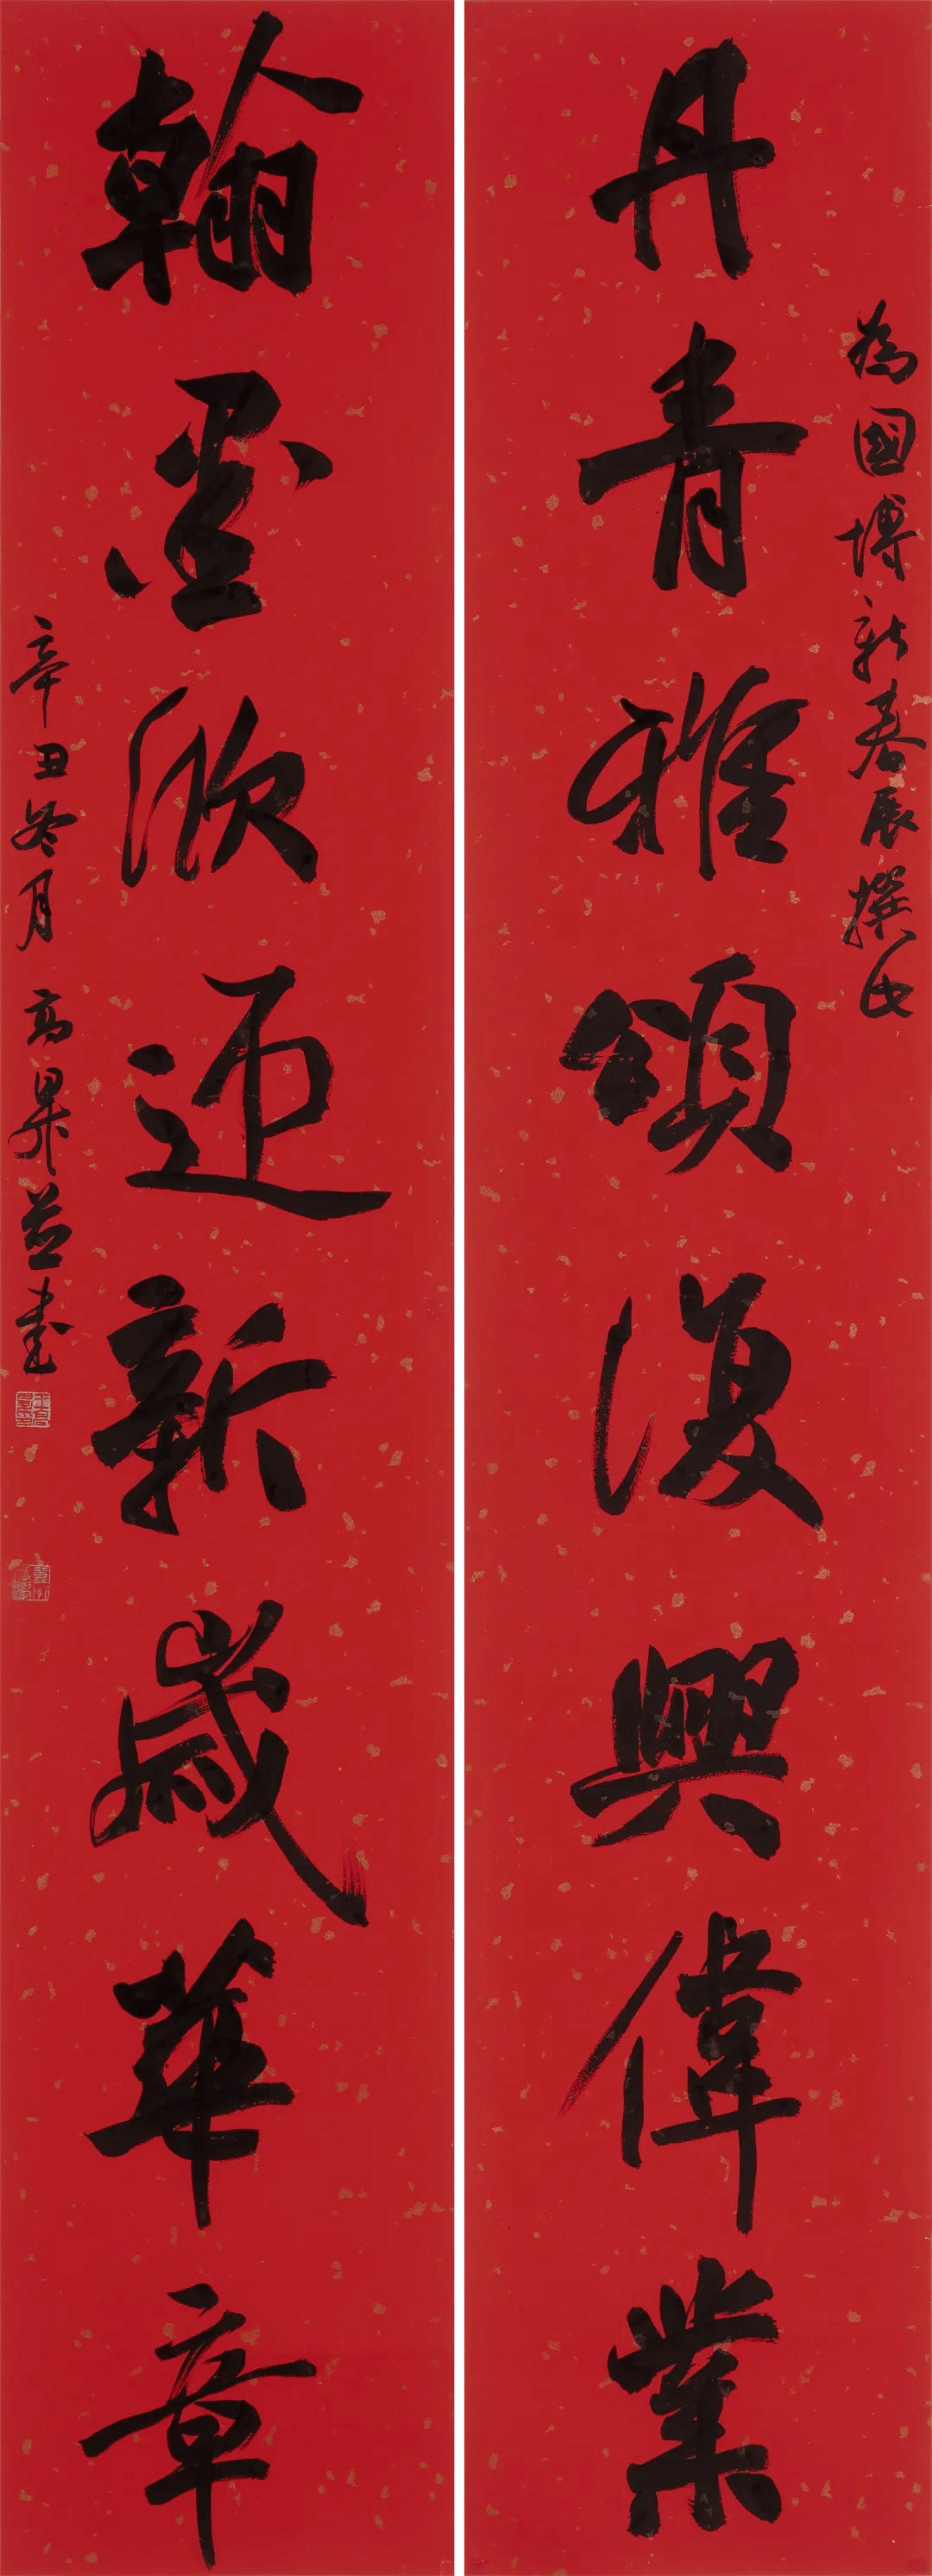 為國博新春展撰句
丹青雅頌復興偉業
翰墨欣迎新歲華章
辛丑冬月高昇並書